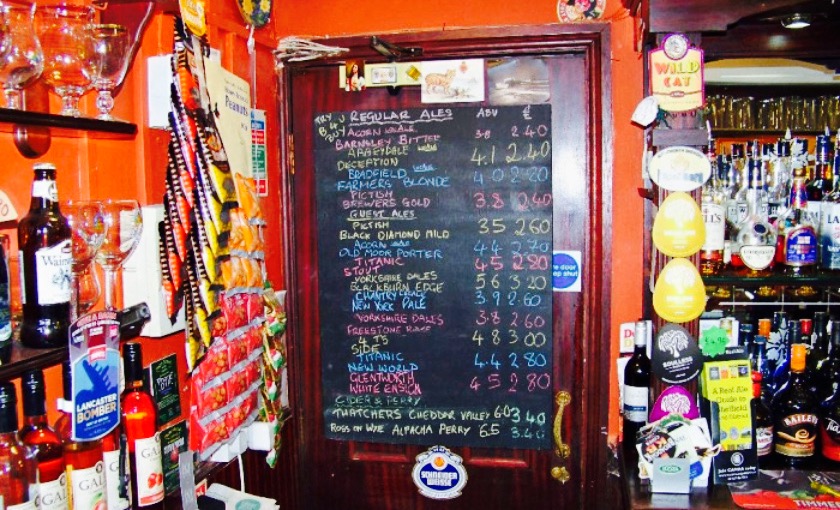 TRY B4U BUY
REGULAR ALES ABV £
ACORN LOCALE
BARNSLEY BITTER 3.8 2.40
ABBEYDALE LOCALE
DECEPTION 4.1 2.40
BRADFIELD LOCALE
FARMERS BLONDE 4.0 2.80
PICTISH
BREWERS GOLD 3.8 2.40
GUEST ALES
PICTISH
BLACK DIAMOND MILD 3.5 2.60
ACORN LOCALE
OLD MOOR PORTER 4.4 2.70
TITANIC
STOUT 4.5 2.80
YORKSHIRE DALES
BLACKBURN EDGE 5.6 3.20
NEW YORK PALE 3.9 2.60
YORKSHIRE DALES
FREESTONE 3.8 2.60
4 TS
SIDE 4.8 3.00
TITANIC
NEW WORLD 4.4 2.80
GLENTWORTH
WHITE ENSIGN 4.5 2.80
CIDER & PERRY
THATCHERS CHEDDAR VALLEY 6.0 3.40
ROSS ON WYE ALPACHA PERRY 6.5 3.40
SCHNEIDER
WEISSE
WILD
CAT
Peanuts
LANCASTER
BOMBER
GAL
GAL
door
shut
SOULLESS
A Real Ale
Guide to
Sheffield
CAMRA
BAILEYS